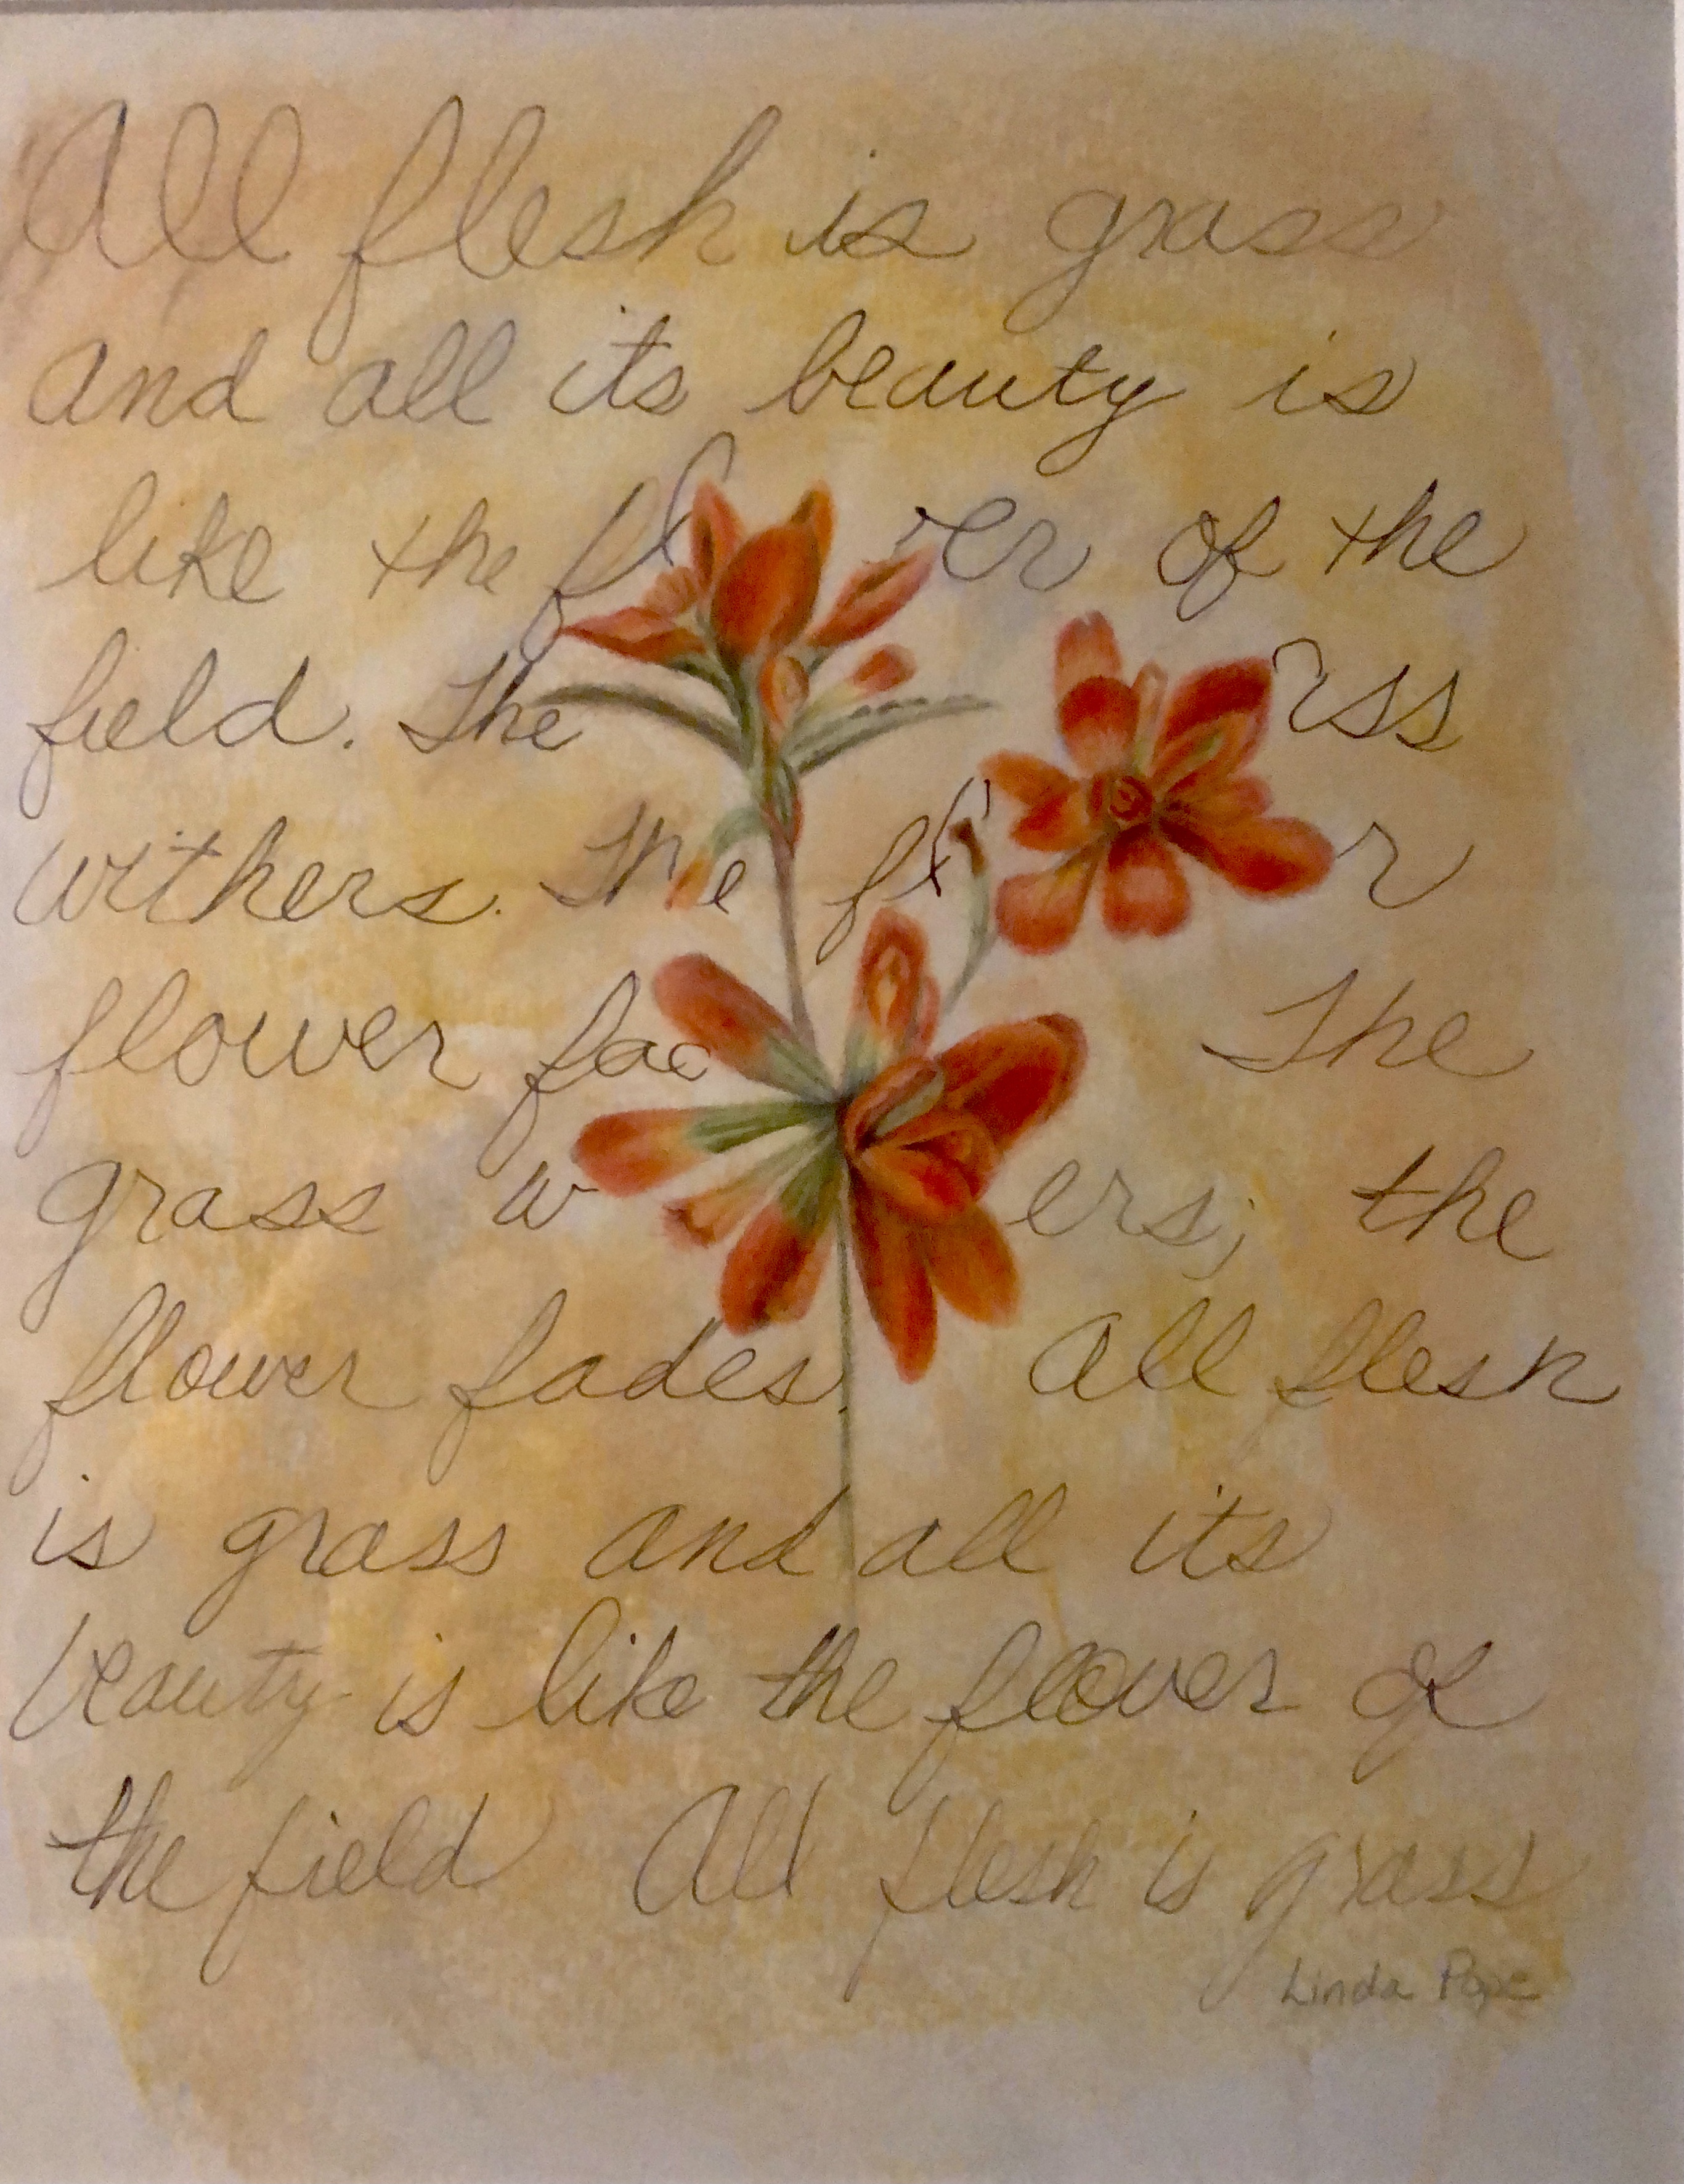 All flesh is grass
and all its beauty is
like the fl er of the
field. The ss
withers. The fl r
flower fa The
grass w ers; the
flower fades. All flesh
is grass and all its
beauty is like the flower of
the field All flesh is grass
Linda Pope